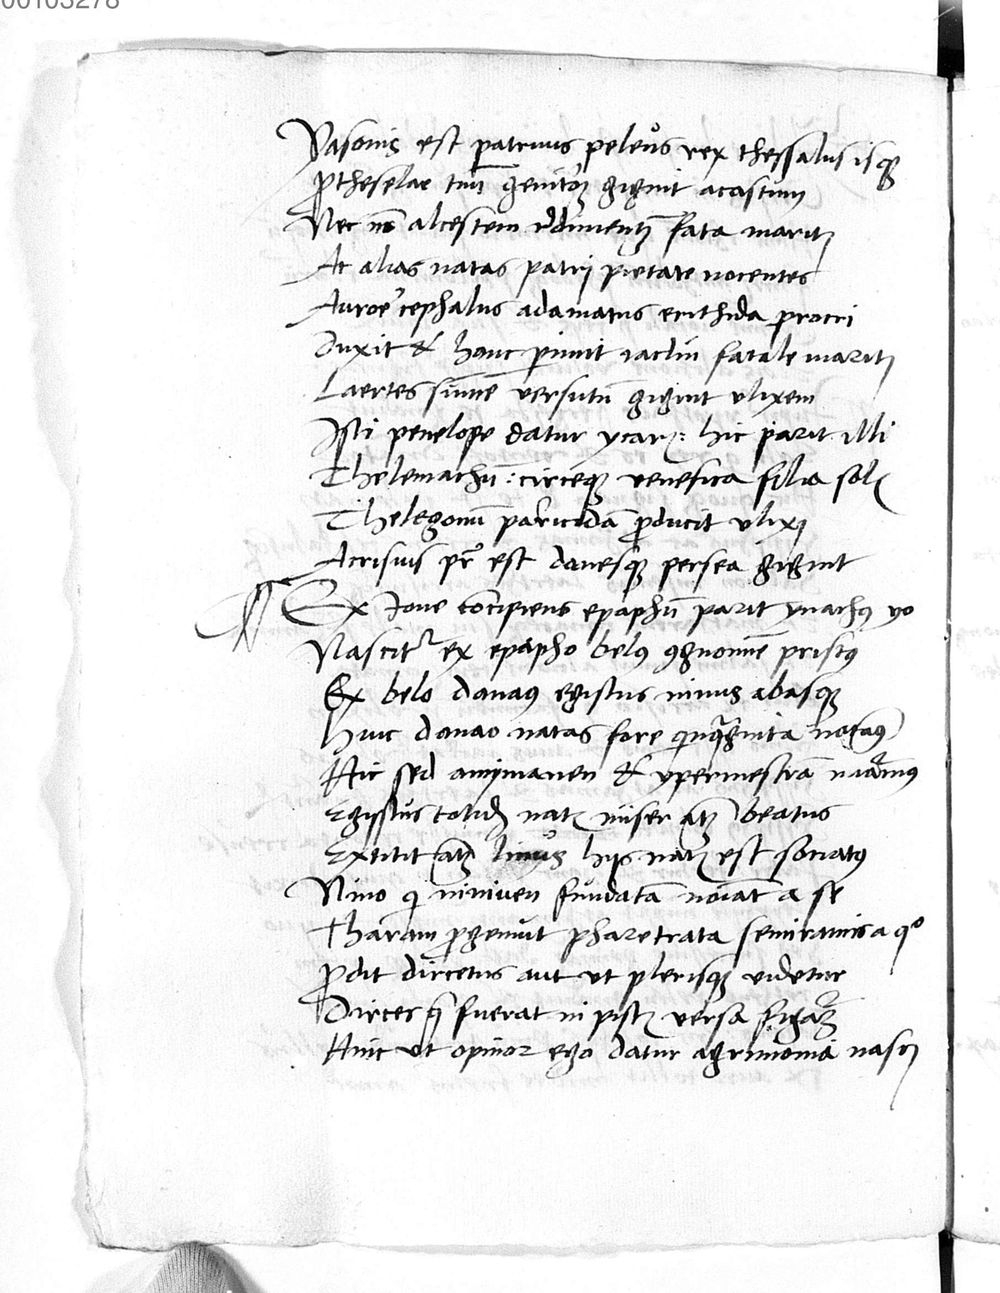 00103278
Yasonis est patruus peleus rex thessalus isque
ptheselae tum genitor gignit acastum
Nec non alcestem redimentem fata mariti
Ac alias natas patrij pietate nocentes
Aurore cephalus adamatus erithida procri
Duxit & hanc pimit iaclm fatale mariti
Laertes summe versutum gignit ulixem
Isti penelope datur ycari: hic parit illi
Thelemachum: circeque venefica filia solis
Thelegonum paricidam producit ulixi
Acrisius pr est danesque persea gignit
Ex Ioue concipiens epaphum parit ynachus yo
Nascitur ex epapho belus cognomine priscus
Ex belo danaus egistus ninus abasque
Huic danao natas fore quinquaginta notamus
Hic sed amymanen & ypermestram
Egisstus totidem natis miser atque beatus
Extitit atque linus hijs natis est sociatus
Nino qui niniuen fundatam nominat a se
Tharam progenuit pharetrata semiramis a quo
prodit dircetus aut ut plerisque videtur
Dirces que fuerat in piscis versa figuram
Hinc ut opinor ego datur agrimonia nasci